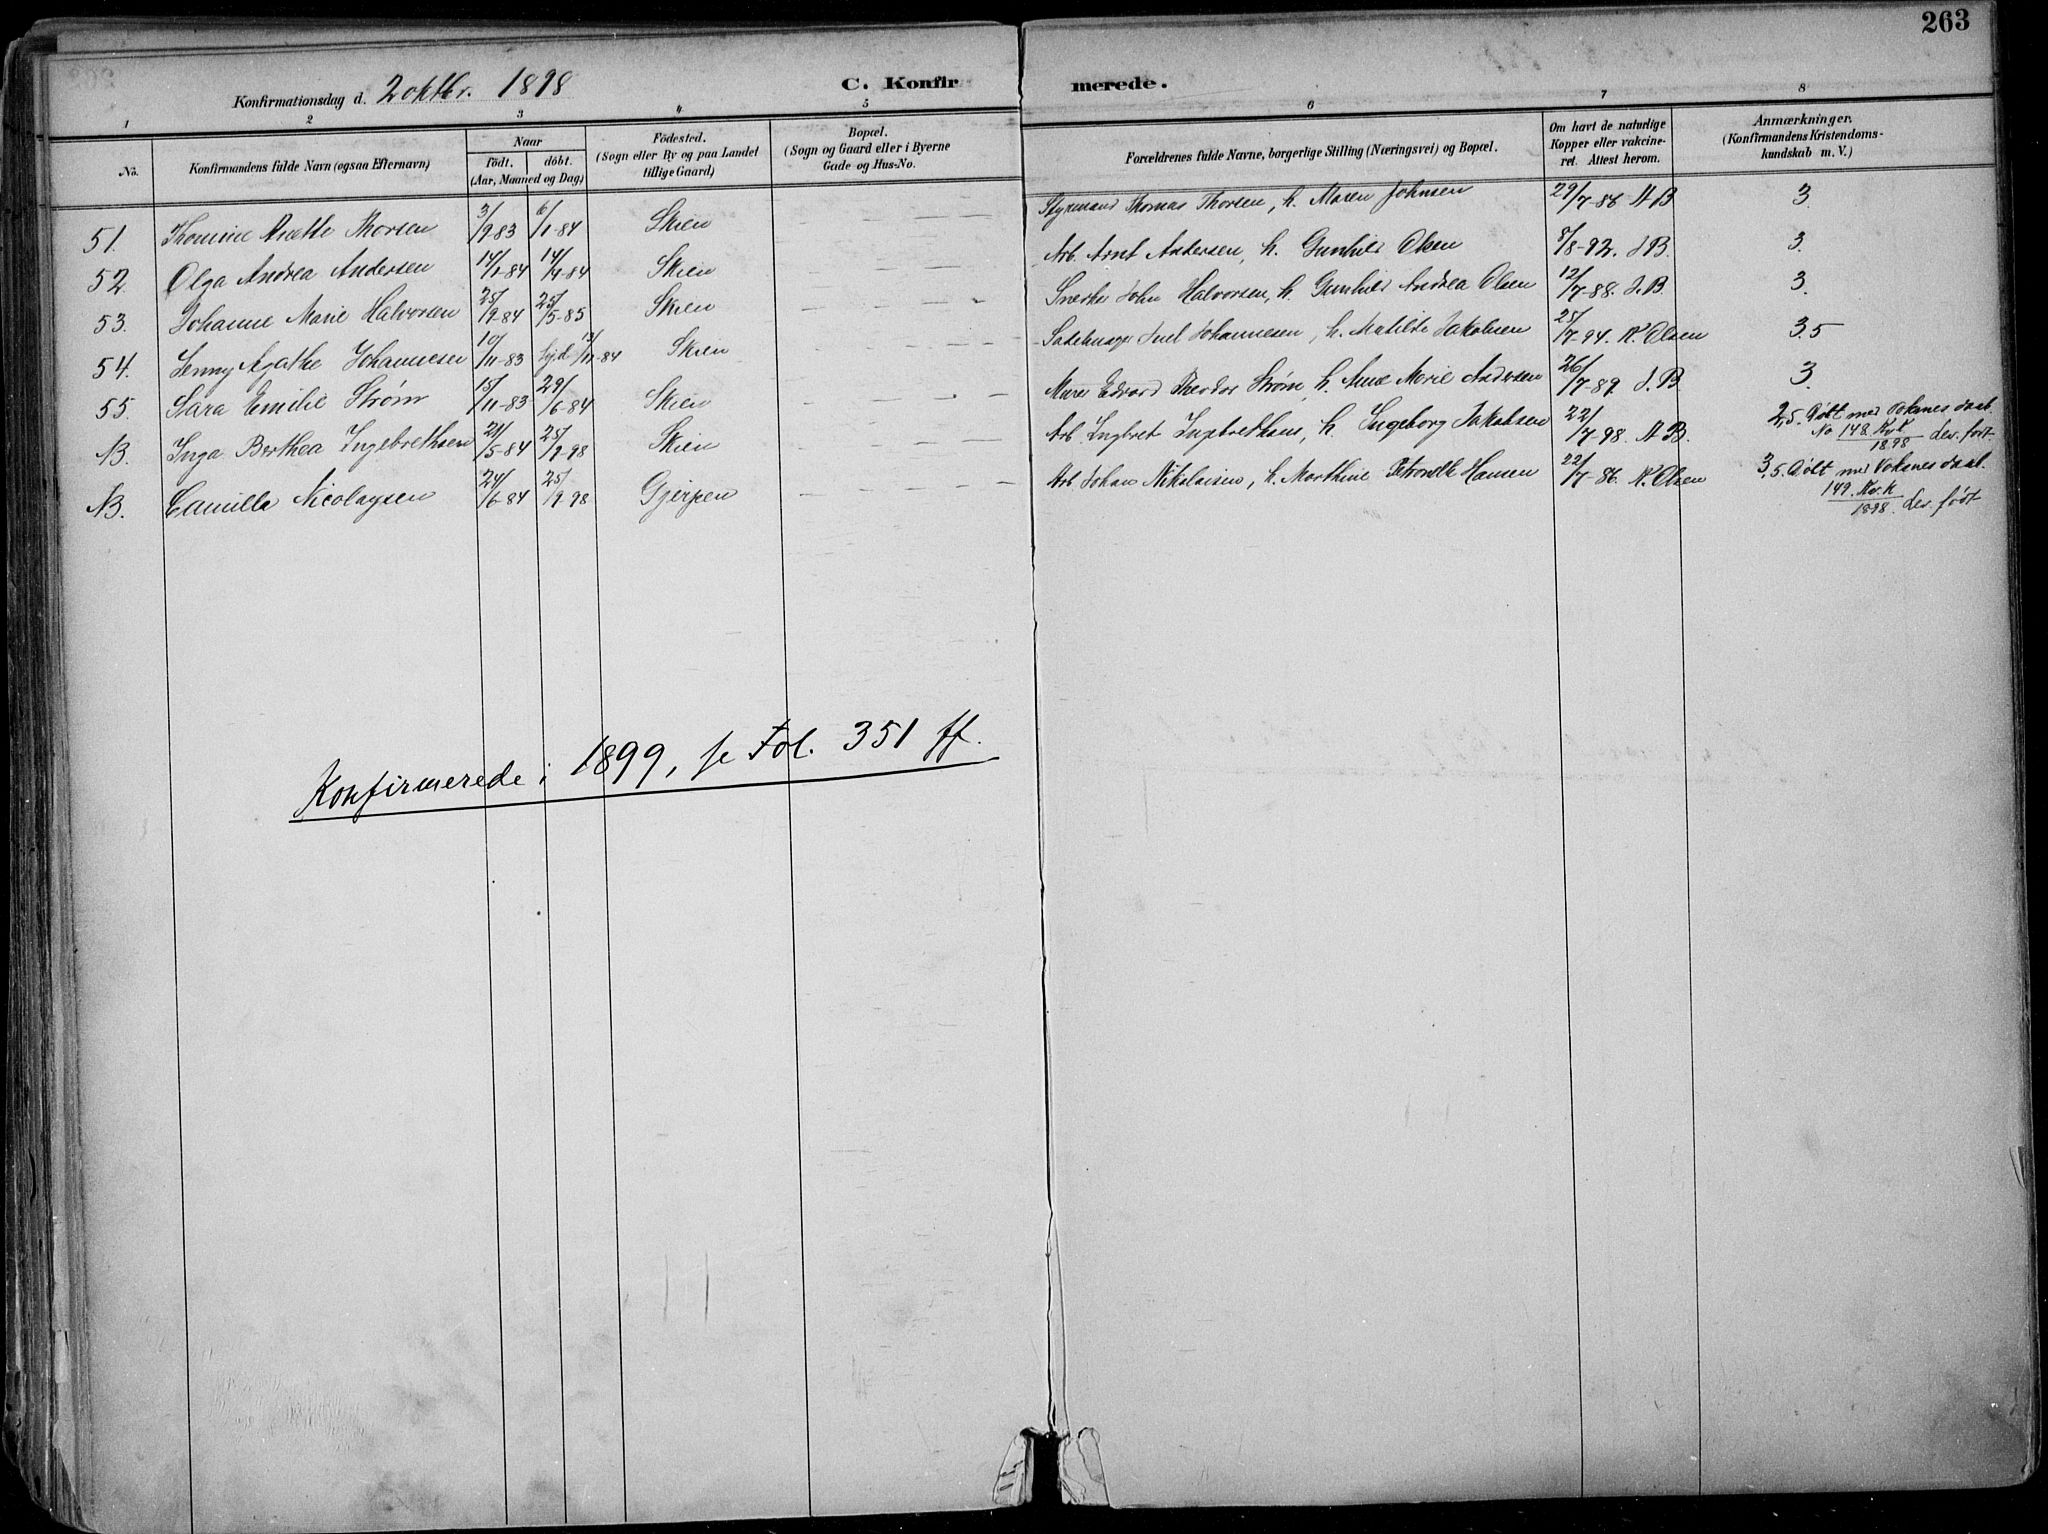 263
Konfirmationsdag d. 2 oktbr. 1898 C. Konfirmerede.
1 2 3 4 5 6 7 8
No. Konfirmandens fulde Navn (ogsaa Efternavn) Naar født. døbt. (Aar, Maaned og Dag) Fødested. (Sogn eller By og paa Landet tillige Gaard) Bopæl. (Sogn og Gaard eller i Byerne Gade og Hus-No. Forældrenes fulde Navne, borgerlige Stilling (Næringsvei) og Bopæl. Om havt de naturlige Kopper eller vakcineret. Attest herom. Anmærkninger. (Konfirmandens Kristendomskundskab m. V.)
51. Thomine Anette Thorsen 3/9-83 6/1-84 Skien Styrmand Thomas Thorsen, h. Maren Johnsen 29/7-86 A B 3.
52. Olga Andrea Andersen 14/1-84 14/4-84 Skien Arb. Arnt Andersen, h. Gunhild Olsen 8/8-92. J B. 3.
53. Johanne Marie Halvorsen 25/9-84 25/5-85 Skien Snedk. John Halvorsen, h. Gunhild Andrea Olsen 12/7-88. J. B. 3.
54. Jenny Agathe Johannesen 10/11-83 Skien Juel Johannesen, h. Matilde Jakobsen 25/7-94. K. Olsen 3.5
55. Sara Emilie Strøm 15/11-83 29/6-84 Skien Murer Edvard Theodor Strøm, h. Anne Marie Andersen 26/7-89. J. B 3.
NB. Inga Berthea Ingebrethsen 21/5-84 25/9-98 Skien Arb. Ingbret Ingebrethsen, h. Ingeborg Jakobsen 22/7-98. A B. 2,5. Døbt med Voksnes daab. No 148. K. r. k 1898 der. født
NB. Camilla Nicolaysen 24/6-84 25/9-98 Gjerpen Arb. Johan Nikolaisen, h. Marthine Petronelle Hansen 22/7-86. K. Olsen 3,5. Døbt med Voksnes daab. 149. K. r. k 1898. der. født
Konfirmerede i 1899, se Fol. 351 ff.